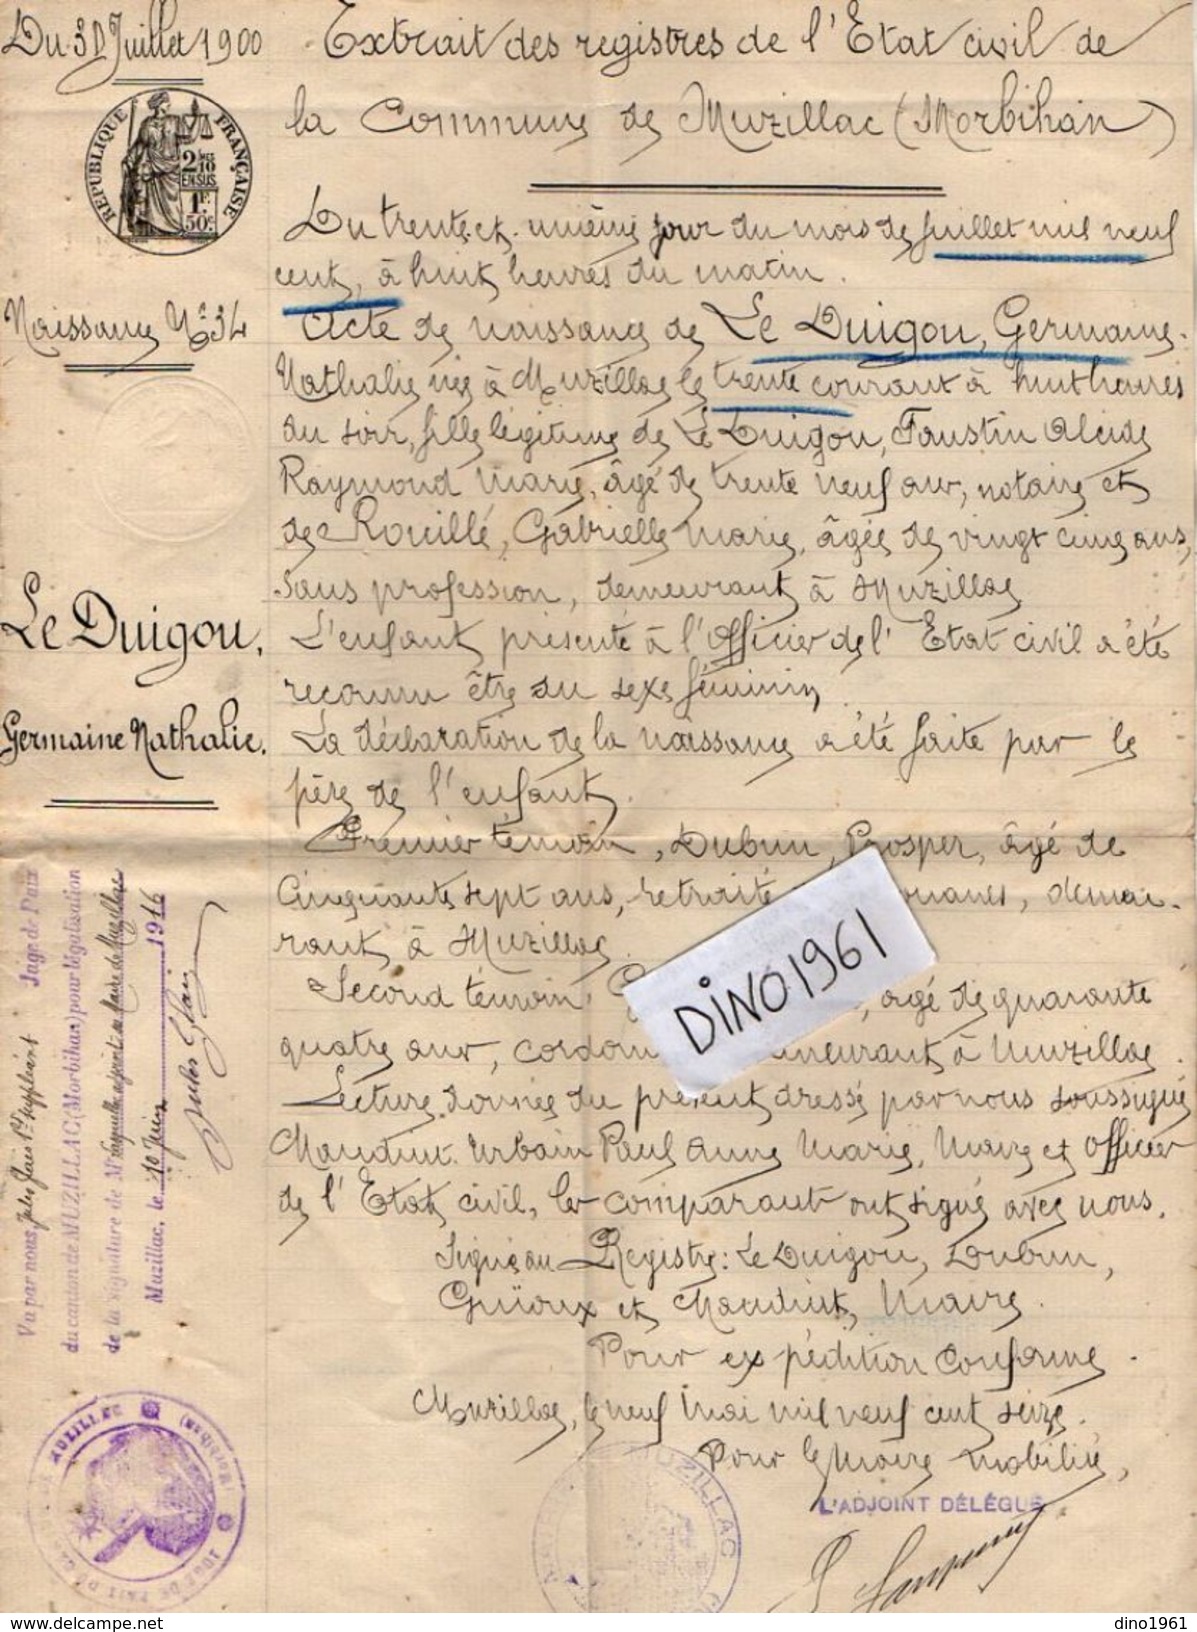 Du 31 Juillet 1900
RÉPUBLIQUE FRANÇAISE
2/10 EN SUS
1F. 50c.
Naissance N° 34
Le Duigou,
Germaine Nathalie.
Vu par nous, Jules Juge de Paix
du canton de MUZILLAC (Morbihan) pour légalisation
de la signature de Mr adjoint au Maire de Muzillac
Muzillac, le 10 Juin 1916
Extrait des registres de l'Etat civil de
la Commune de Muzillac (Morbihan)
Du trente et unième jour du mois de juillet mil neuf
cent, à huit heures du matin.
Acte de naissance de Le Duigou, Germaine
Nathalie née à Muzillac le trente courant à huit heures
du soir, fille légitime de Le Duigou, Faustin Alcide
Raymond Marie, âgé de trente neuf ans, notaire et
de Rouillé, Gabrielle Marie, âgée de vingt cinq ans,
sans profession, demeurant à Muzillac
L'enfant présenté à l'Officier de l'Etat civil a été
reconnu être du sexe féminin
La déclaration de la naissance a été faite par le
père de l'enfant.
Premier témoin, Dubun, Prosper, âgé de
Cinquante sept ans, retraité ouanes, demeu-
rant à Muzillac
Second témoin, âgé de quarante
quatre ans, cordon meurant à Muzillac.
Lecture donnée du présent dressé par nous soussigné
Mauduit Urbain Paul Anne Marie, Maire et Officier
de l'Etat civil, les comparants ont signé avec nous.
Signé au Registre: Le Duigou, Dubun,
Guïoux et Mauduit, Maire.
Pour expédition conforme.
Muzillac, le neuf Mai mil neuf cent seize.
Pour le Maire mobilisé,
L'ADJOINT DÉLÉGUÉ
MUZILLAC
DINO1961
dino1961